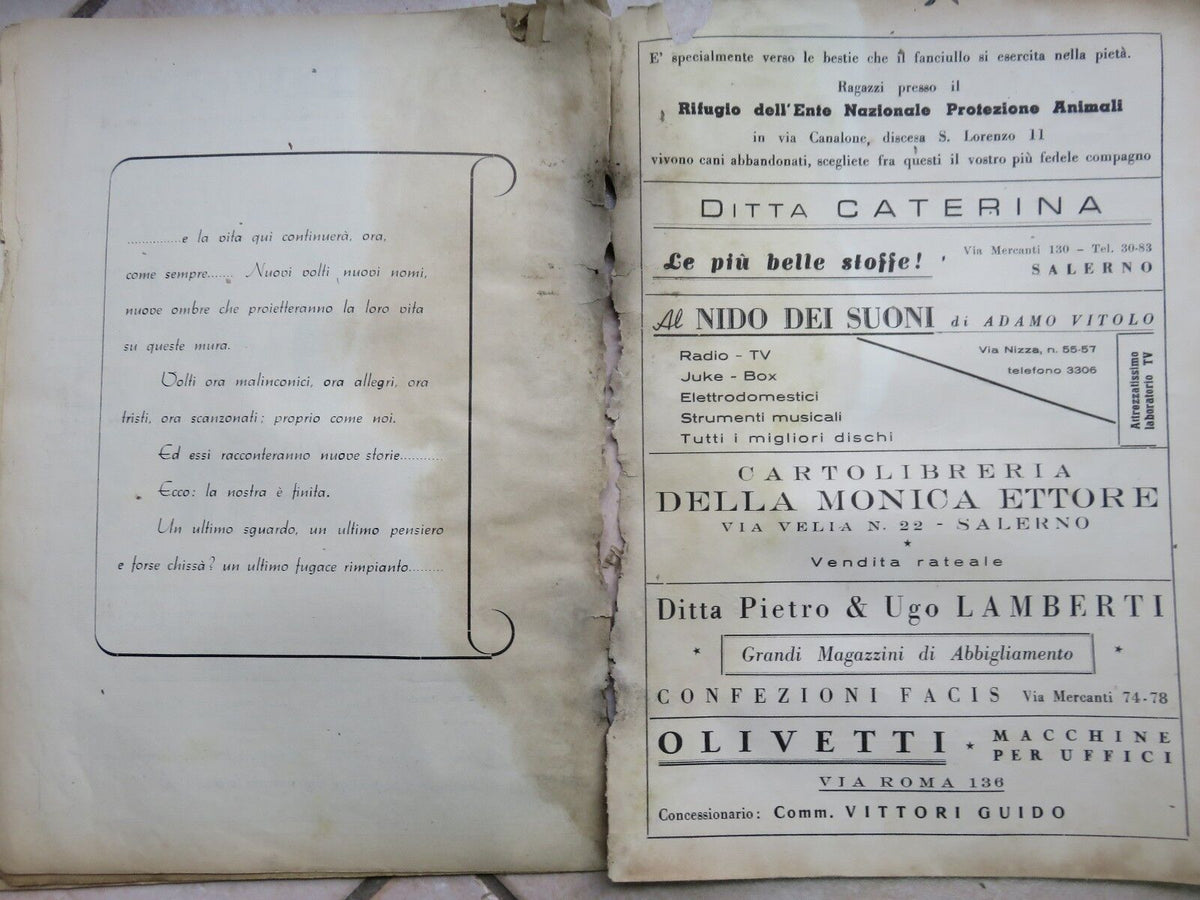 ..............e la vita qui continuerà, ora,
come sempre....... Nuovi volti nuovi nomi,
nuove ombre che proietteranno la loro vita
su queste mura.
Volti ora malinconici, ora allegri, ora
tristi, ora scanzonati; proprio come noi.
Ed essi racconteranno nuove storie...........
Ecco: la nostra è finita.
Un ultimo sguardo, un ultimo pensiero
e forse chissà? un ultimo fugace rimpianto.........
E' specialmente verso le bestie che il fanciullo si esercita nella pietà.
Ragazzi presso il
Rifugio dell'Ente Nazionale Protezione Animali
in via Canalone, discesa S. Lorenzo 11
vivono cani abbandonati, scegliete fra questi il vostro più fedele compagno
DITTA CATERINA
Le più belle stoffe!
Via Mercanti 130 - Tel. 30-83
SALERNO
Al NIDO DEI SUONI di ADAMO VITOLO
Radio - TV
Juke - Box
Elettrodomestici
Strumenti musicali
Tutti i migliori dischi
Via Nizza, n. 55-57
telefono 3306
Attrezzatissimo
laboratorio TV
CARTOLIBRERIA
DELLA MONICA ETTORE
VIA VELIA N. 22 - SALERNO
★
Vendita rateale
Ditta Pietro & Ugo LAMBERTI
★ Grandi Magazzini di Abbigliamento ★
CONFEZIONI FACIS Via Mercanti 74-78
OLIVETTI ★ MACCHINE
PER UFFICI
VIA ROMA 136
Concessionario: Comm. VITTORI GUIDO